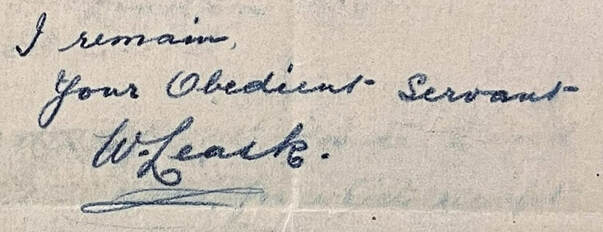 I remain,
Your Obedient Servant
W. Leask.